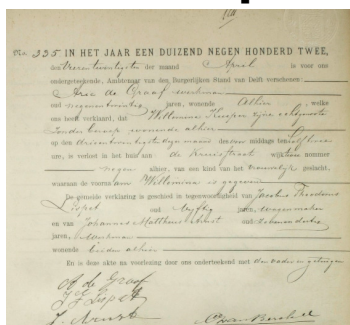 No. 335 IN HET JAAR EEN DUIZEND NEGEN HONDERD TWEE,
den Vierentwintigsten der maand April is voor ons
ondergeteekende, Ambtenaar van den Burgerlijken Stand van Delft verschenen:
Arie de Graaf werkman
oud negenentwintig jaren, wonende Alhier, welke
ons heeft verklaard, dat Willemina Kuiper zijne echtgenoote
zonder beroep wonende alhier
op den drieentwintigsten dezer maand des voor middags ten elf
ure, is verlost in het huis aan de Kruisstraat wijk nummer
negen alhier, van een kind van het vrouwelijk geslacht,
waaraan de voornaam Willemina is gegeven
De gemelde verklaring is geschied in tegenwoordigheid van Jacobus Theodorus
Lispet oud vijftig jaren, wagenmaker
en van Johannes Mattheus oud zevenendertig
jaren,
wonende beiden alhier
En is deze akte na voorlezing door ons onderteekend met den vader en getuigen
A de Graaf
Lispet
van Berckel